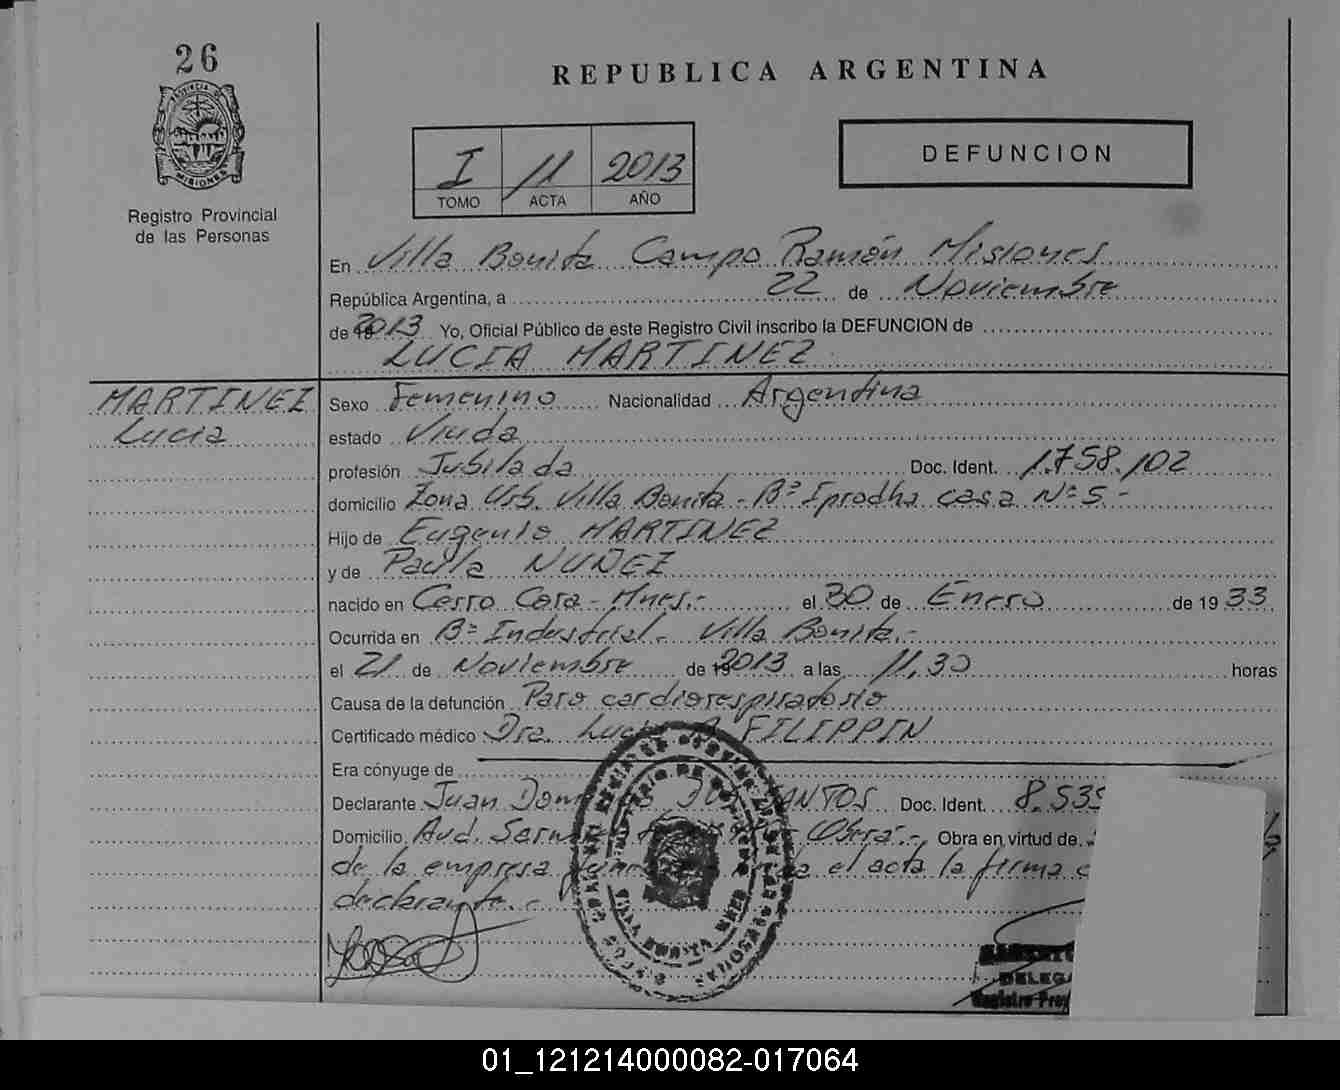 26
PROVINCIA DE
MISIONES
Registro Provincial
de las Personas
REPUBLICA ARGENTINA
I 11 2013
TOMO ACTA AÑO
DEFUNCION
En Villa Bonita Campo Ramón Misiones
República Argentina, a 22 de Noviembre
de 2013 Yo, Oficial Público de este Registro Civil inscribo la DEFUNCION de
LUCIA MARTINEZ
MARTINEZ
Lucia
Sexo Femenino Nacionalidad Argentina
estado Viuda
profesión Jubilada Doc. Ident. 1.758.102
domicilio Zona Urb. Villa Bonita - Bº Iprodha casa Nº 5.-
Hijo de Eugenio MARTINEZ
y de Paula NUÑEZ
nacido en Cerro Cora - Mnes.- el 30 de Enero de 1933
Ocurrida en Bº Industrial - Villa Bonita.-
el 21 de Noviembre de 2013 a las 11,30 horas
Causa de la defunción Paro cardiorespiratorio
Certificado médico Dra. FILIPPIN
Era cónyuge de
Declarante Juan Doc. Ident. 8.535
Domicilio Avd. Oberá.- Obra en virtud de
de la empresa el acta la firma
declarante.-
DELEGA
Registro Prov
01_121214000082-017064